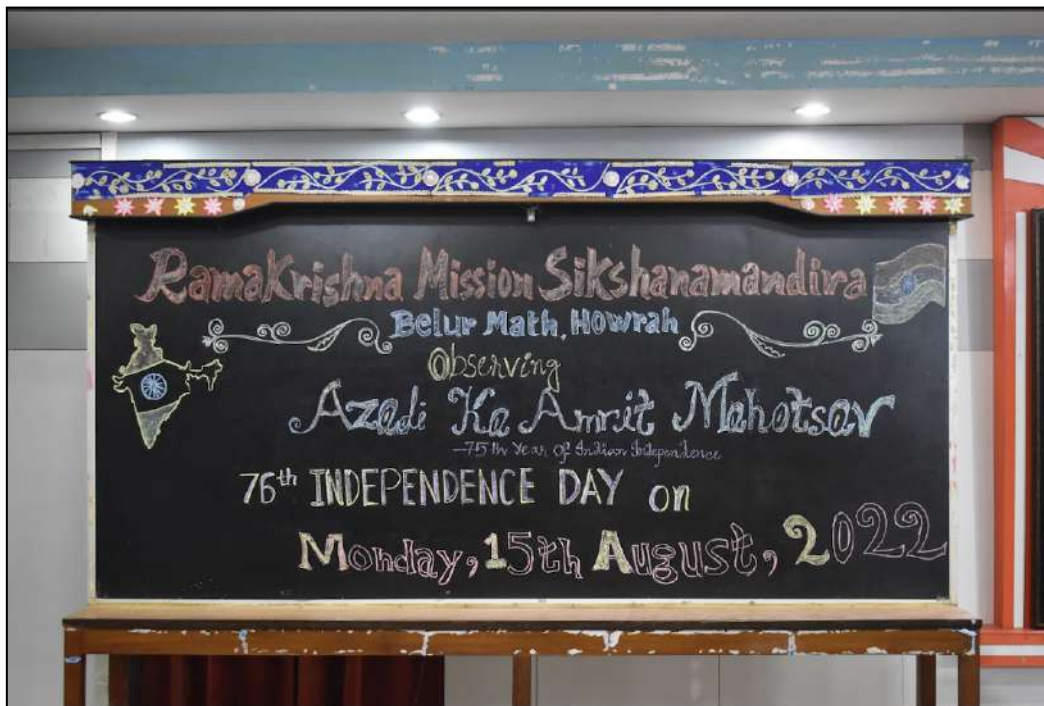 RamaKrishna Mission Sikshanamandira
Belur Math, Howrah
Observing
Azadi Ka Amrit Mahotsav
—75th Year of Indian Independence
76th INDEPENDENCE DAY on
Monday, 15th August, 2022